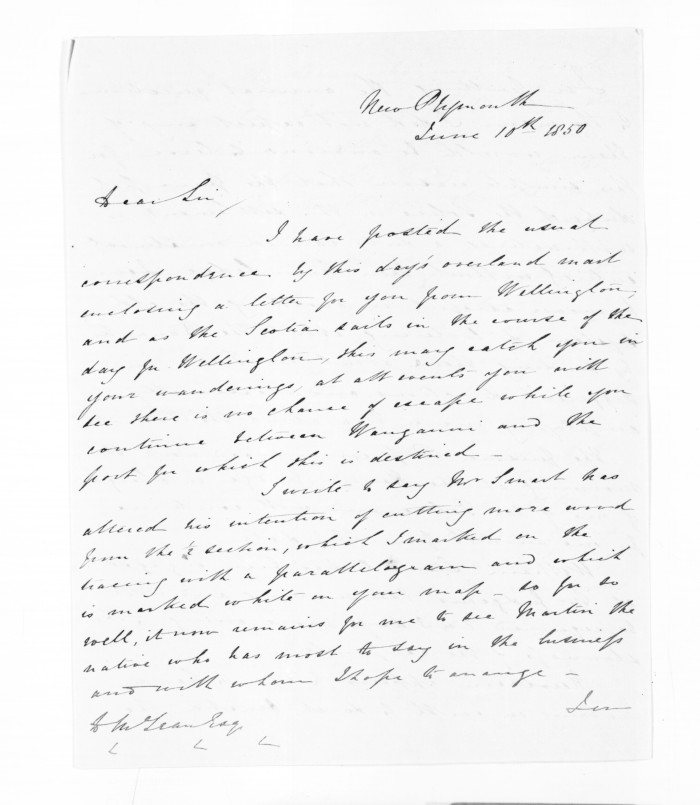 New Plymouth
June 10th 1850
Dear Sir,
I have posted the usual
correspondence by this day's overland mail
enclosing a letter for you from Wellington,
and as the Scotia sails in the course of the
day for Wellington, this may catch you in
your wanderings, at all events you will
see there is no chance of escape while you
continue between Wanganui and the
port for which this is destined –
I write to say Mr Smart has
altered his intention of cutting more wood
from the ½ section, which I marked on the
tracing with a parallelogram and which
is marked white on your map – so far so
well, it now remains for me to see Martin the
native who has most to say in the business
and with whom I hope to arrange –
D McLean Esq